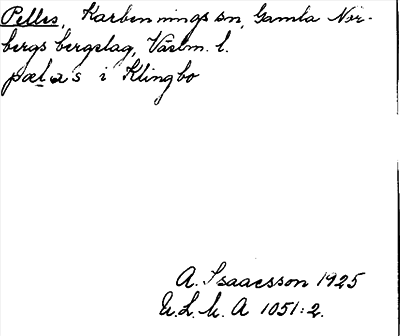 Pelles, Karbennings sn, Gamla Nor-
bergs bergslag, Västm. l.
pælas i Klingbo
A. Isaacsson 1925
U.L.M. A 1051:2.